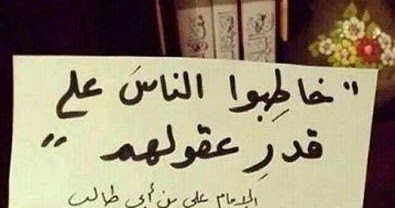 "خاطِبوا الناسَ على
قدرِ عقولهم"
الإمام علي بن أبي طالب